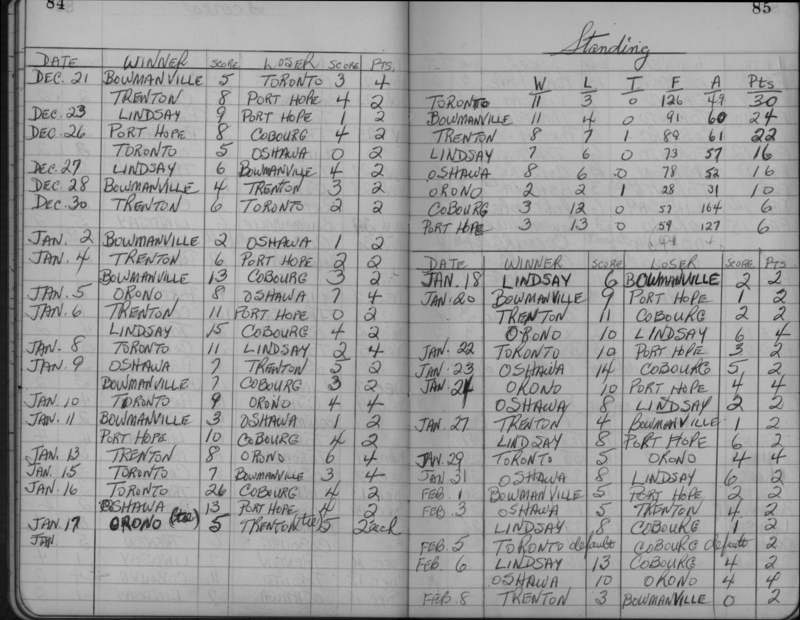 84
DATE WINNER SCORE LOSER SCORE PTS.
DEC. 21 BOWMANVILLE 5 TORONTO 3 4
TRENTON 8 PORT HOPE 4 2
DEC. 23 LINDSAY 9 PORT HOPE 1 2
DEC. 26 PORT HOPE 8 COBOURG 4 2
TORONTO 5 OSHAWA 0 2
DEC. 27 LINDSAY 6 BOWMANVILLE 4 2
DEC. 28 BOWMANVILLE 4 TRENTON 3 2
DEC. 30 TRENTON 6 TORONTO 2 2
JAN. 2 BOWMANVILLE 2 OSHAWA 1 2
JAN. 4 TRENTON 6 PORT HOPE 2 2
BOWMANVILLE 13 COBOURG 3 2
JAN. 5 ORONO 8 OSHAWA 7 4
JAN. 6 TRENTON 11 PORT HOPE 0 2
LINDSAY 15 COBOURG 4 2
JAN. 8 TORONTO 11 LINDSAY 2 4
JAN. 9 OSHAWA 7 TRENTON 5 2
BOWMANVILLE 7 COBOURG 3 2
JAN. 10 TORONTO 9 ORONO 4 4
JAN. 11 BOWMANVILLE 3 OSHAWA 1 2
PORT HOPE 10 COBOURG 4 2
JAN. 13 TRENTON 8 ORONO 6 4
JAN. 15 TORONTO 7 BOWMANVILLE 3 4
JAN. 16 TORONTO 26 COBOURG 4 2
OSHAWA 13 PORT HOPE 4 2
JAN. 17 ORONO (tie) 5 TRENTON (tie) 5 2 each
JAN
85
Standing
W L T F A Pts
TORONTO 11 3 0 126 49 30
BOWMANVILLE 11 4 0 91 60 24
TRENTON 8 7 1 89 61 22
LINDSAY 7 6 0 73 57 16
OSHAWA 8 6 0 78 52 16
ORONO 2 2 1 28 31 10
COBOURG 3 12 0 57 164 6
PORT HOPE 3 13 0 59 127 6
DATE WINNER SCORE LOSER SCORE PTS
JAN. 18 LINDSAY 6 BOWMANVILLE 2 2
JAN. 20 BOWMANVILLE 9 PORT HOPE 1 2
TRENTON 11 COBOURG 2 2
ORONO 10 LINDSAY 6 4
JAN. 22 TORONTO 10 PORT HOPE 3 2
JAN. 23 OSHAWA 14 COBOURG 5 2
JAN. 24 ORONO 10 PORT HOPE 4 4
OSHAWA 8 LINDSAY 2 2
JAN. 27 TRENTON 4 BOWMANVILLE 1 2
LINDSAY 8 PORT HOPE 6 2
JAN. 29 TORONTO 5 ORONO 4 4
JAN 31 OSHAWA 8 LINDSAY 6 2
FEB. 1 BOWMANVILLE 5 PORT HOPE 2 2
FEB. 3 OSHAWA 5 TRENTON 4 2
LINDSAY 8 COBOURG 1 2
FEB. 5 TORONTO default COBOURG default 2
FEB. 6 LINDSAY 13 COBOURG 4 2
OSHAWA 10 ORONO 4 4
FEB. 8 TRENTON 3 BOWMANVILLE 0 2